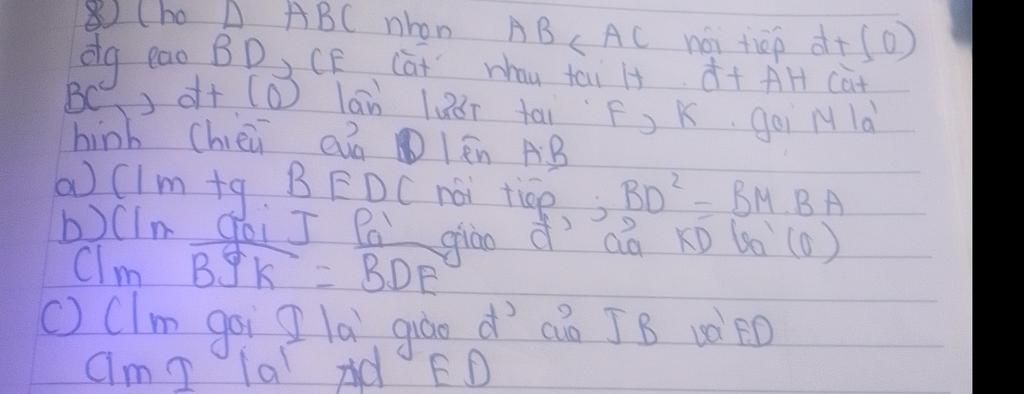 8) Cho Δ ABC nhọn AB < AC nội tiếp đt (O)
đg cao BD, CE cắt nhau tại H. đt AH cắt
BC, đt (O) lần lượt tại F, K. gọi M là
hình chiếu của D lên AB
a) C/m tg BEDC nội tiếp; BD² = BM.BA
b) C/m gọi J là giao đ' của KD và (O)
C/m BJK = BDE
c) C/m gọi I là giao đ' của JB và ED
C/m I là ED